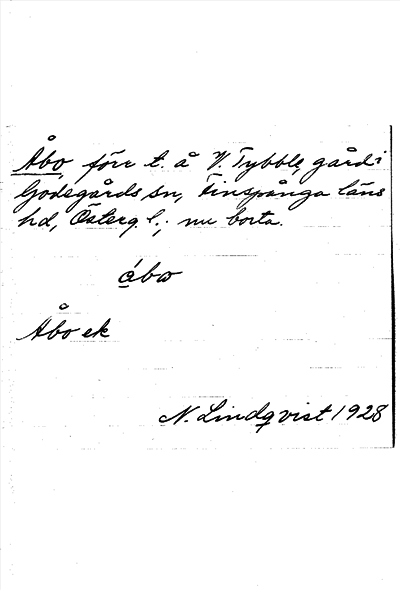 Åbo, förr t. å V. Tybble, gård i
Godegårds sn, Finspånga läns
hd, Österg. l.; nu borta.
åbω
Åbo ek
N. Lindqvist 1928